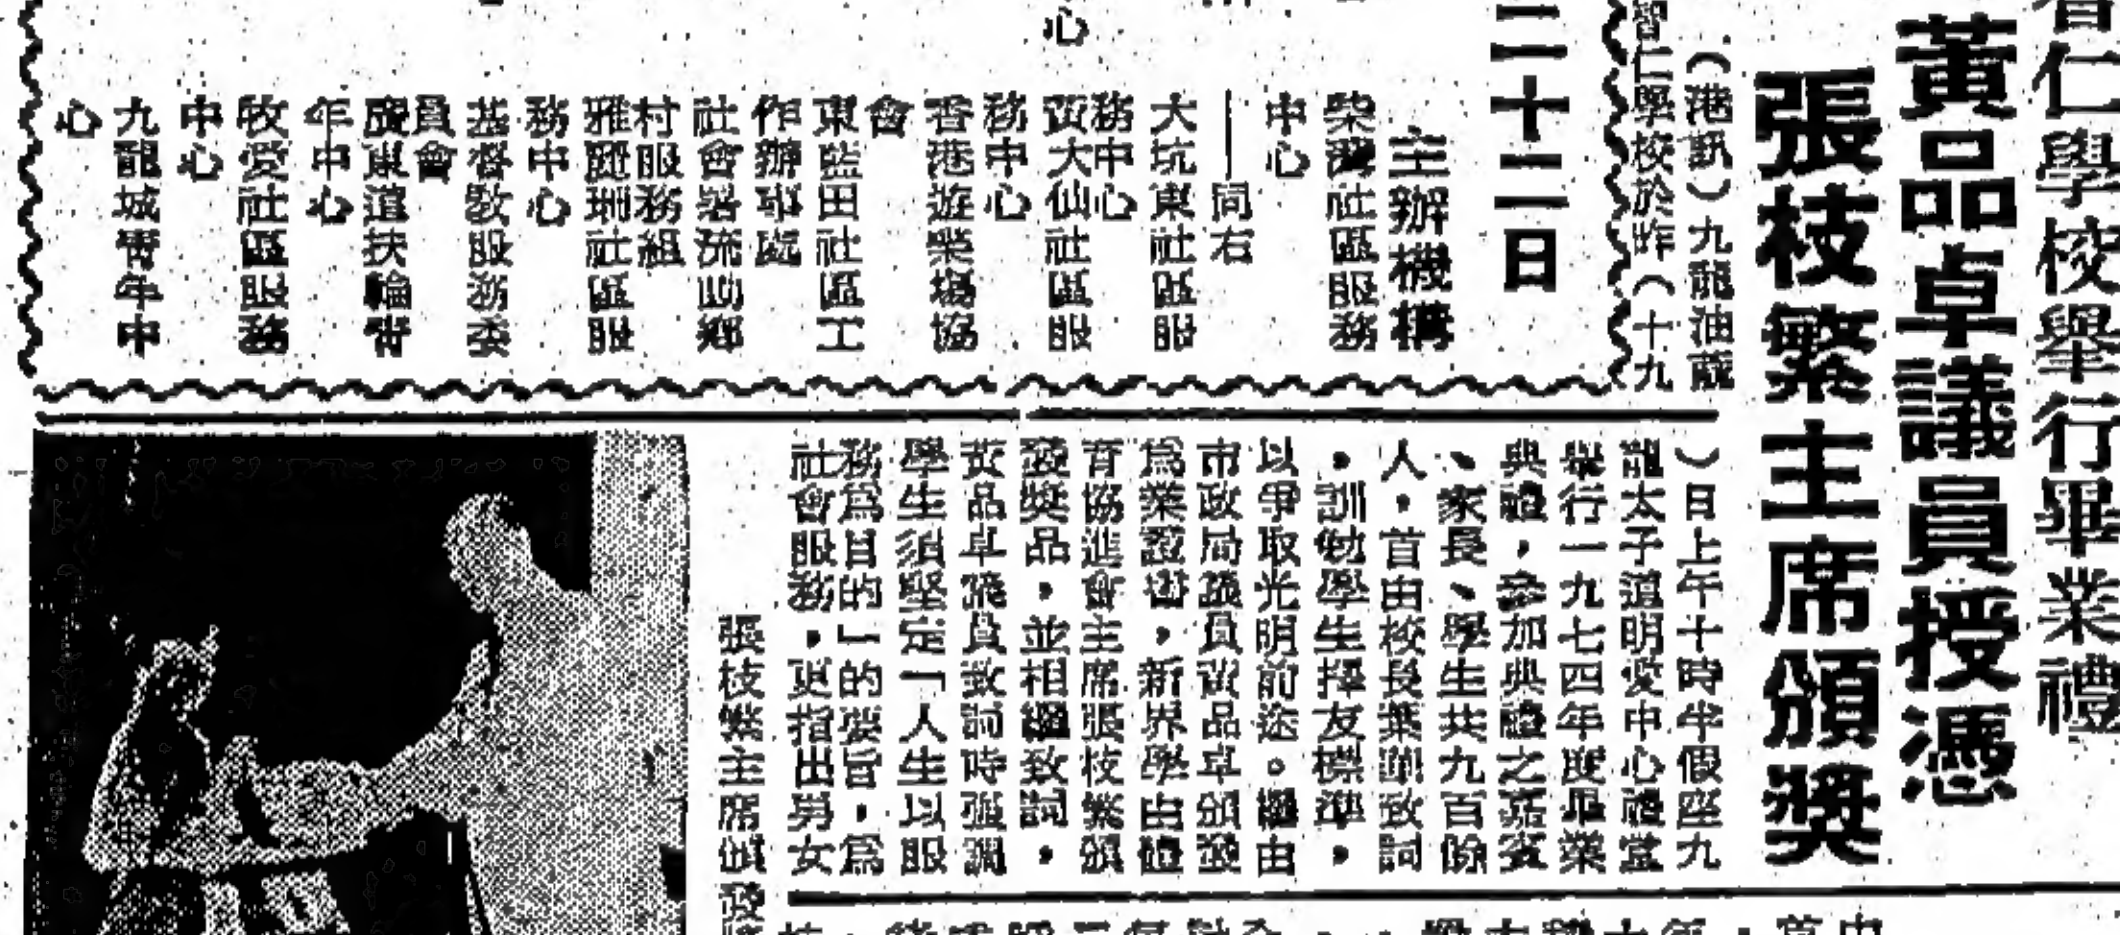 智仁學校舉行畢業禮
黃品卓議員授憑
張枝繁主席頒獎
（港訊）九龍油蔴
智仁學校於昨（十九
）日上午十時半假座九
龍太子道明愛中心禮堂
舉行一九七四年度畢業
典禮，參加典禮之嘉賓
、家長、學生共九百餘
人，首由校長葉 致詞
，訓勉學生擇友標準，
以爭取光明前途。繼由
市政局議員黃品卓頒發
爲業證書，新界學由體
育協進會主席張枝繁頒
發獎品，並相繼致詞，
黃品卓議員致詞時強調
學生須堅定「人生以服
務爲目的」的要旨，爲
社會服務，更指出男女
張枝繁主席頒發
二十二日
主辦機構
柴灣社區服務
中心
——同右
大坑東社區服
務中心
黃大仙社區服
務中心
香港遊樂場協
會
東藍田社區工
作辦事處
社會署流動鄉
村服務組
雅麗珊社區服
務中心
基督教服務委
員會
廣東道扶輪青
年中心
牧愛社區服務
中心
九龍城青年中
心